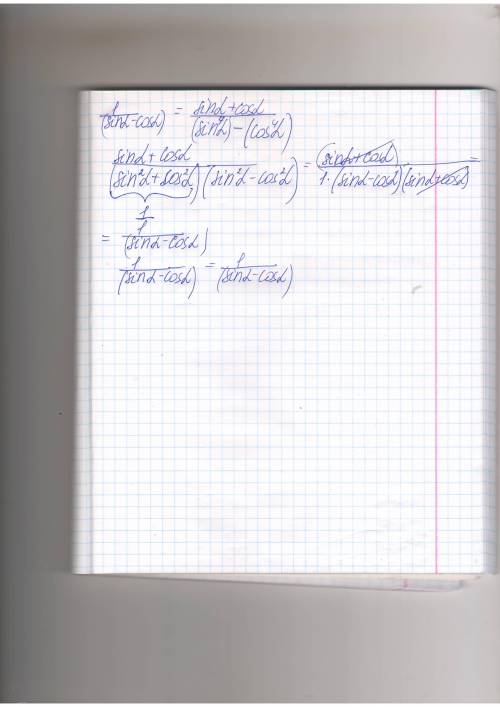 1/(sinα-cosα) = (sinα+cosα)/((sin⁴α)-(cos⁴α))
(sinα+cosα)/((sin²α+cos²α)(sin²α-cos²α)) = (sinα+cosα)/(1·(sinα-cosα)(sinα+cosα)) =
1
= 1/(sinα-cosα)
1/(sinα-cosα) = 1/(sinα-cosα)